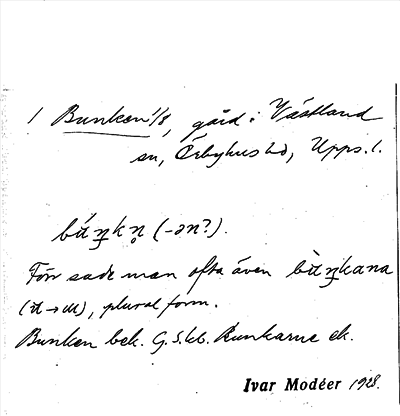 1 Bunken 1/8, gård i Västland
sn, Örbyhus hd, Upps. l.
(-ən?).
Förr sade man ofta även
plural form.
Bunken bek. G. S. kb. Runkarne ek.
Ivar Modéer 1928.